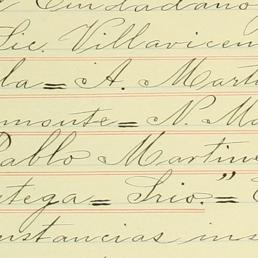 Ciudadano
Lic. Villavicen
la = A. Marti
monte = N. Ma
Pablo Martine
tega = Srio."
unstancias ins